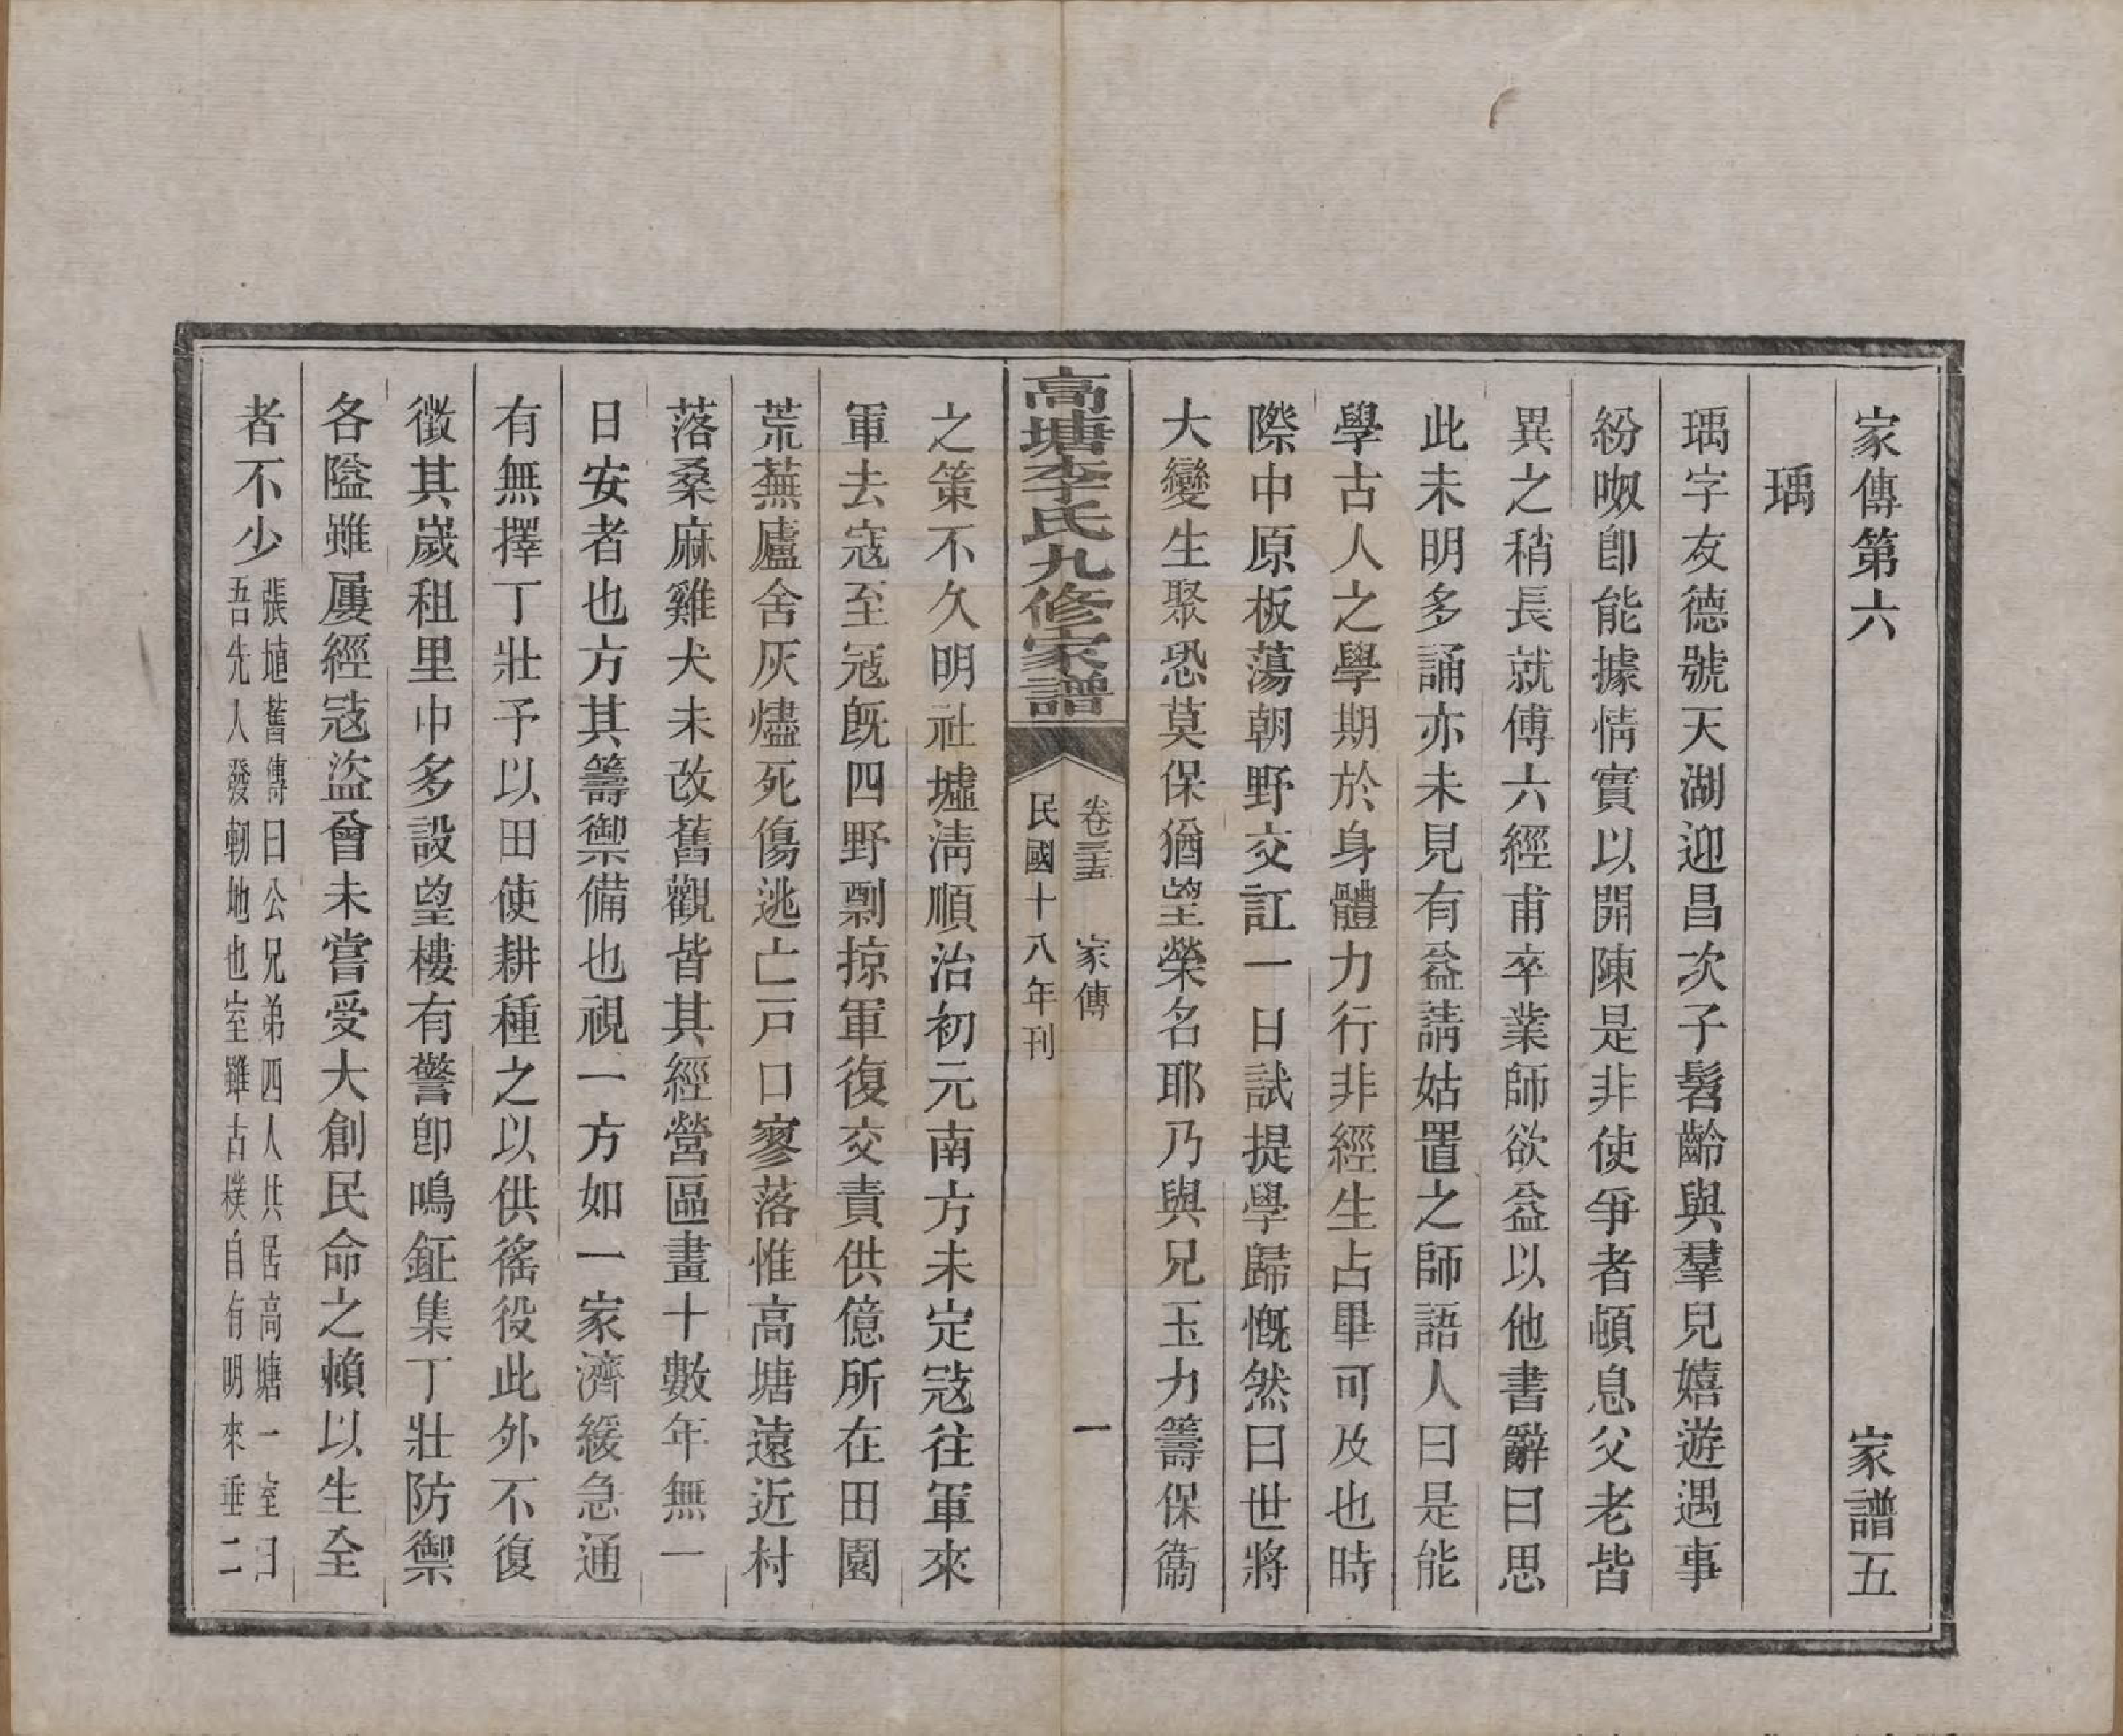 家傳第六　家譜五
瑀
瑀字友德號天湖迎昌次子髫齡與羣兒嬉遊遇事
紛呶卽能據情實以開陳是非使爭者頓息父老皆
異之稍長就傅六經甫卒業師欲益以他書辭曰思
此未明多誦亦未見有益請姑置之師語人曰是能
學古人之學期於身體力行非經生占畢可及也時
際中原板蕩朝野交訌一日試提學歸慨然曰世將
大變生聚恐莫保猶望榮名耶乃與兄玉力籌保衞
高塘李氏九修家譜
卷三十五　家傳　一
民國十八年刊
之策不久明社墟淸順治初元南方未定寇往軍來
軍去寇至寇旣四野剽掠軍復交責供億所在田園
荒蕪廬舍灰燼死傷逃亡戸口寥落惟高塘遠近村
落桑麻雞犬未改舊觀皆其經營區畫十數年無一
日安者也方其籌禦備也視一方如一家濟緩急通
有無擇丁壯予以田使耕種之以供徭役此外不復
徵其歲租里中多設望樓有警卽鳴鉦集丁壯防禦
各隘雖屢經寇盜曾未嘗受大創民命之賴以生全
者不少張埴舊傳曰公兄弟四人共居高塘一室曰
吾先人發軔地也室雖古樸自有明來垂二